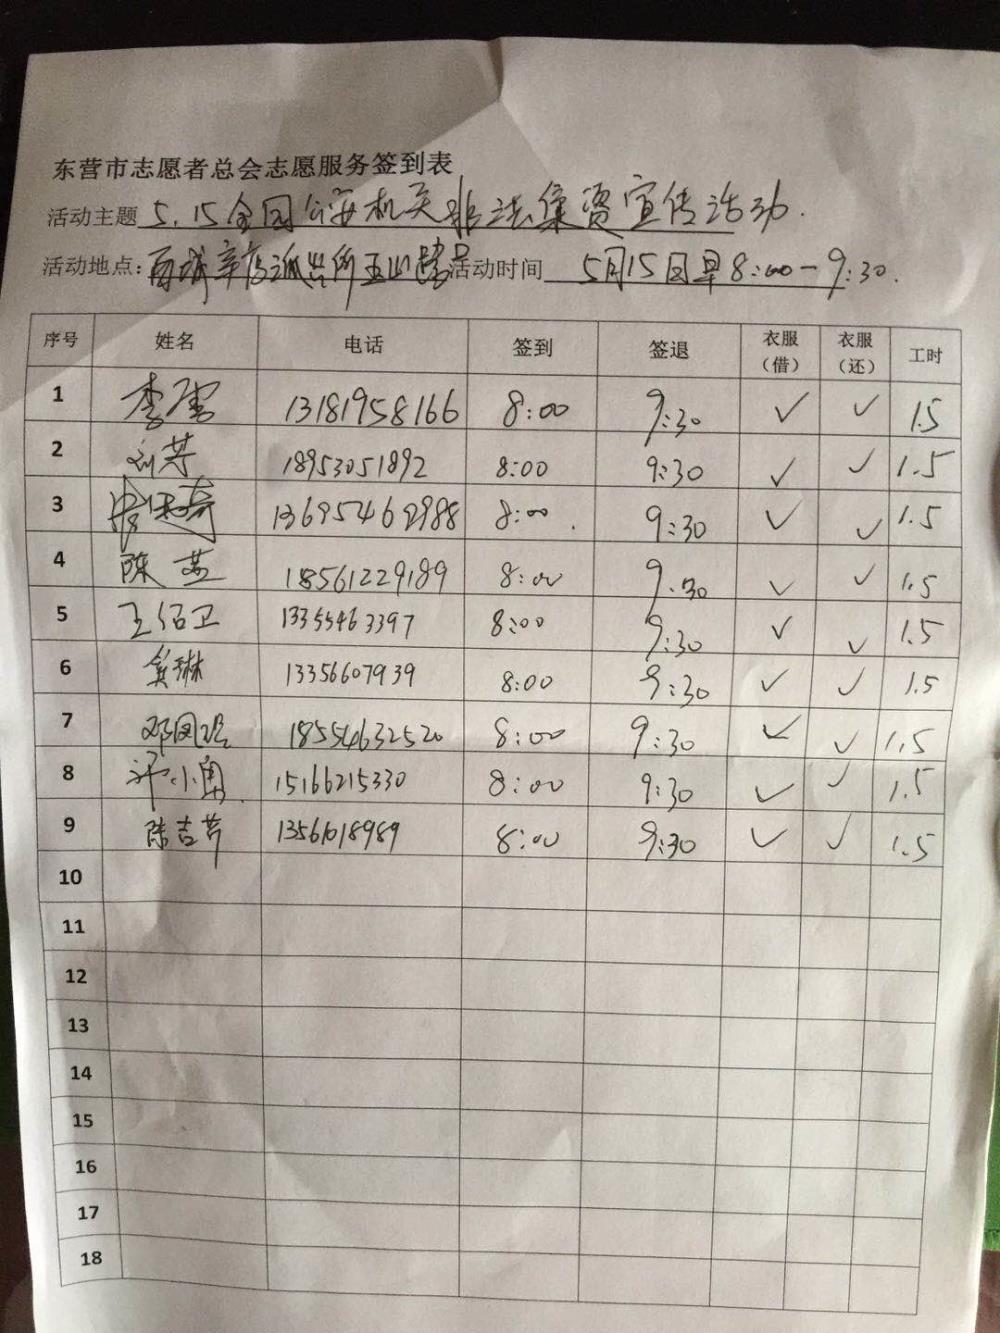 东营市志愿者总会志愿服务签到表
活动主题 5.15全国公安机关非法集资宣传活动.
活动地点: 西城辛店派出所 活动时间 5月15日早8:00-9:30.
序号 姓名 电话 签到 签退 衣服（借） 衣服（还） 工时
1 李雪 13181958166 8:00 9:30 ✓ ✓ 1.5
2 刘芹 18953051892 8:00 9:30 ✓ ✓ 1.5
3 13695462988 8:00 9:30 ✓ ✓ 1.5
4 陈燕 18561229189 8:00 9:30 ✓ ✓ 1.5
5 王绍卫 13355463397 8:00 9:30 ✓ ✓ 1.5
6 13356607939 8:00 9:30 ✓ ✓ 1.5
7 18554632520 8:00 9:30 ✓ ✓ 1.5
8 15166215330 8:00 9:30 ✓ ✓ 1.5
9 陈吉芹 13561018989 8:00 9:30 ✓ ✓ 1.5
10
11
12
13
14
15
16
17
18